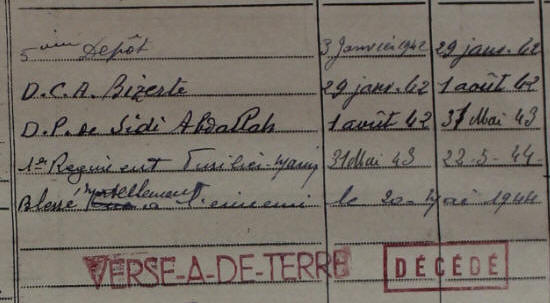 5ième Depôt 3 Janvier 1942 29 janv. 42
D.C.A. Bizerte 29 janv. 42 1 août 42
D.P. de Sidi Abdallah 1 août 42 31 Mai 43
1er Regiment Fusilier-Marin 31 Mai 43 22-5-44-
Blessé mortellement à l'ennemi le 20 Mai 1944
VERSE-A-DE-TERRE DÉCÉDÉ